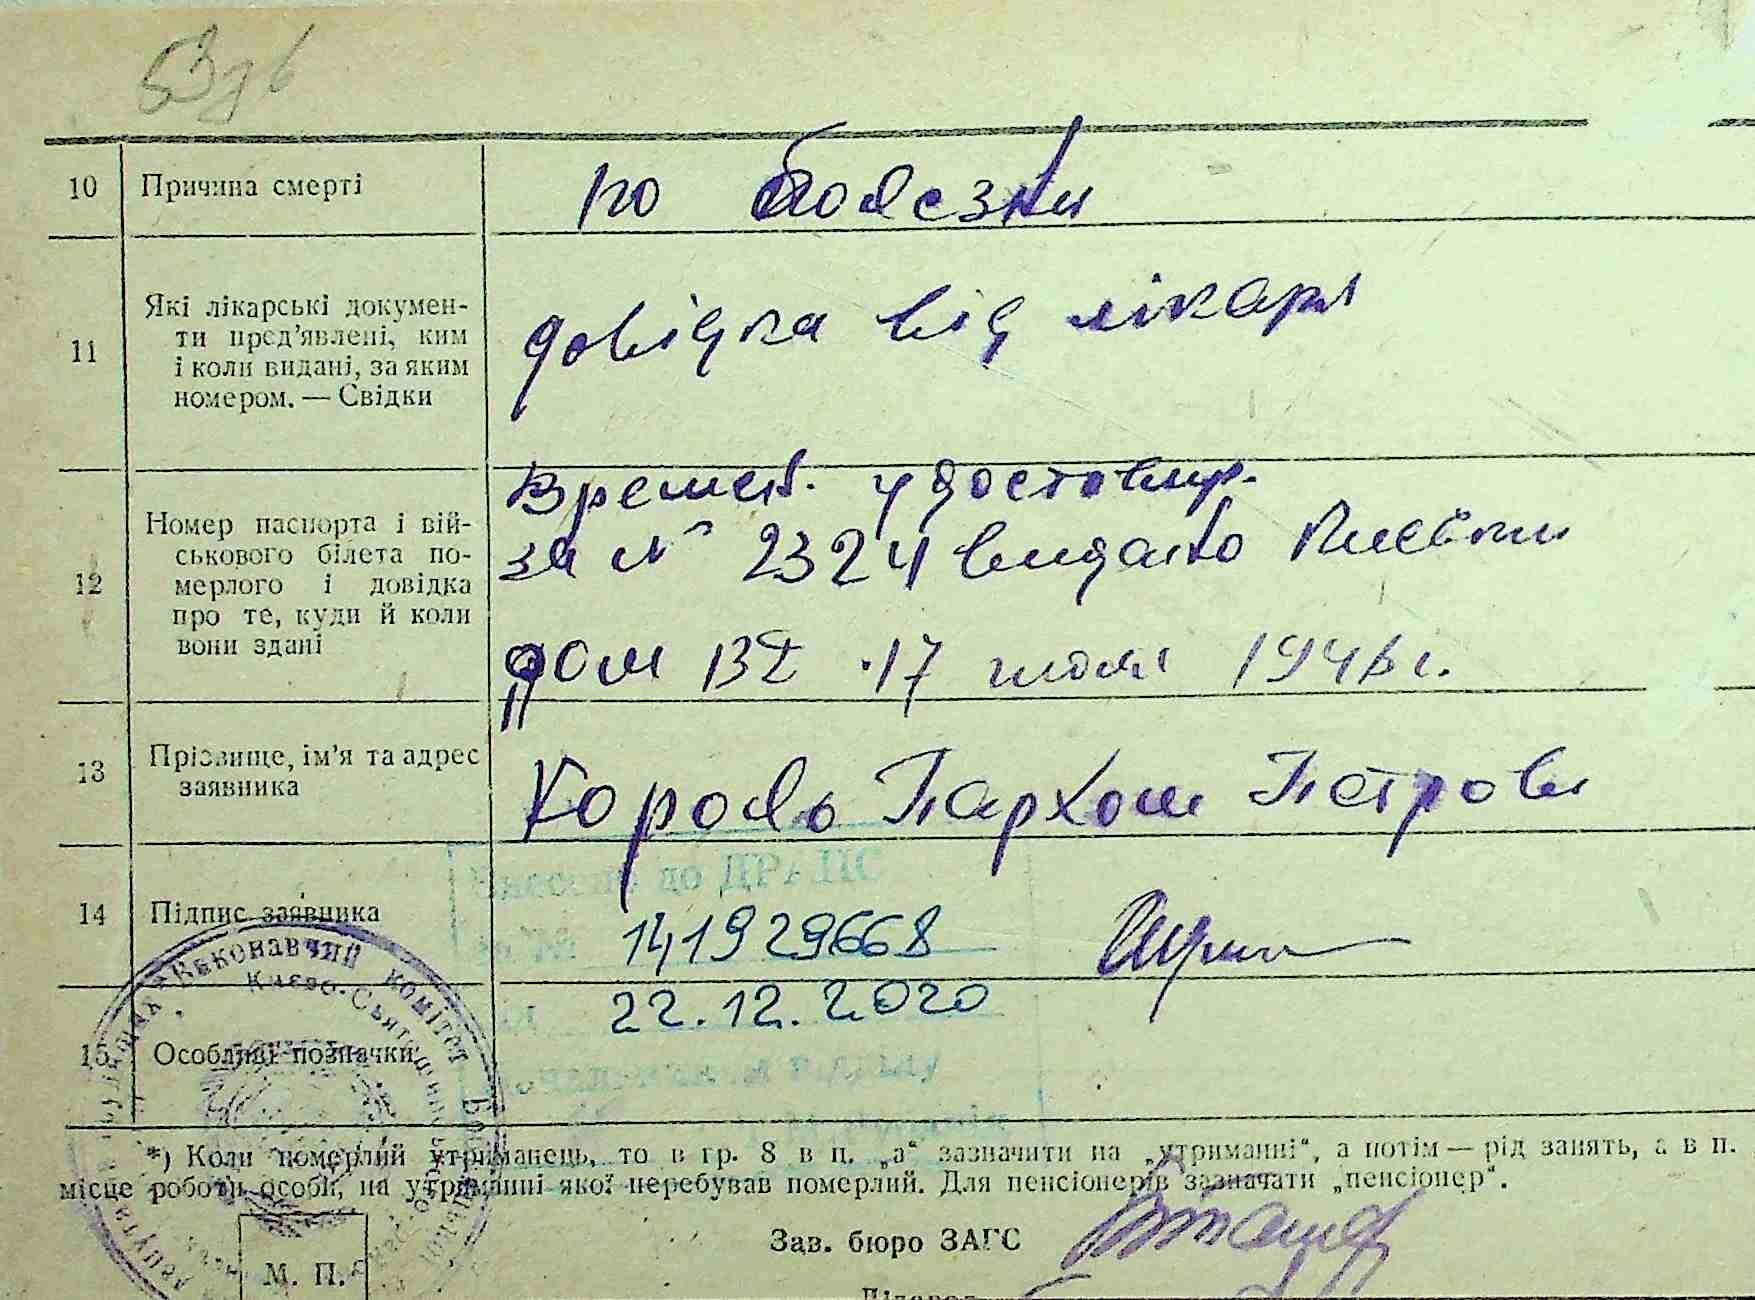 10 Причина смерті
по болезни
11 Які лікарські докумен-
ти пред'явлені, ким
і коли видані, за яким
номером. — Свідки
довідка від лікаря
12 Номер паспорта і вій-
ськового білета по-
мерлого і довідка
про те, куди й коли
вони здані
Времен. удостовир.
за № 2324 видано
дом 17 июля 1946 г.
13 Прізвище, ім'я та адрес
заявника
Король Пархом Петрови
14 Підпис заявника
Внесено до ДРАЦС
за № 141929668
22.12.2020
15 Особливі позначки
Виконавчий комітет
Києво-Святошин
*) Коли померлий утриманець, то в гр. 8 в п. „а“ зазначити на „утриманні“, а потім — рід занять, а в п.
місце роботи особи, на утриманні якої перебував померлий. Для пенсіонерів зазначати „пенсіонер“.
Зав. бюро ЗАГС
М. П.